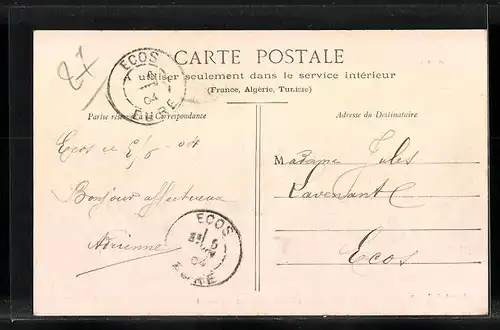 CARTE POSTALE
A utiliser seulement dans le service intérieur
(France, Algérie, Tunisie)
Partie réservée à la Correspondance
Adresse du Destinataire
ECOS
04
EURE
Ecos le 5/6 - 04
Bonjour affectueux
Adrienne
Madame Jules
Ecos
ECOS
5
04
EURE